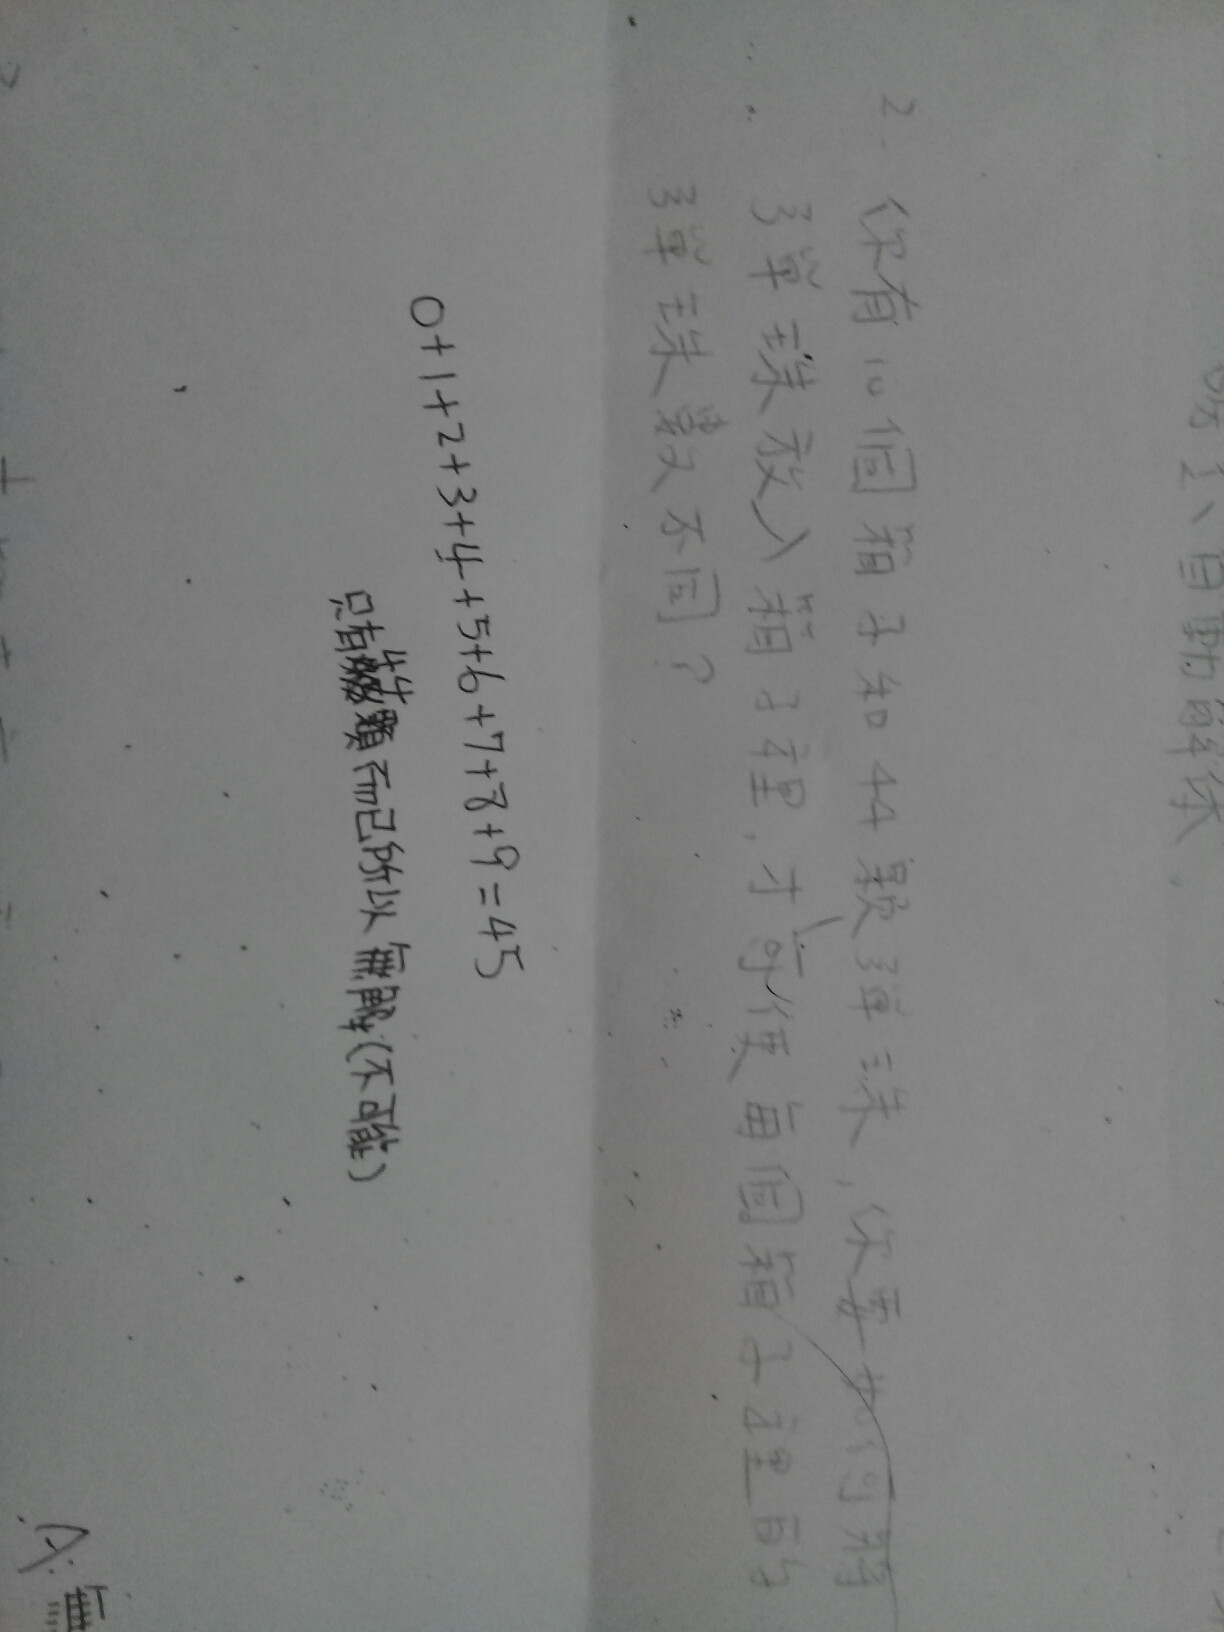 2. 你有10個箱子和44顆彈珠,你要如何將
彈珠放入箱子裡,才可使每個箱子裡的
彈珠數不同?
0+1+2+3+4+5+6+7+8+9=45
只有44顆而已所以無解(不可能)
A:無